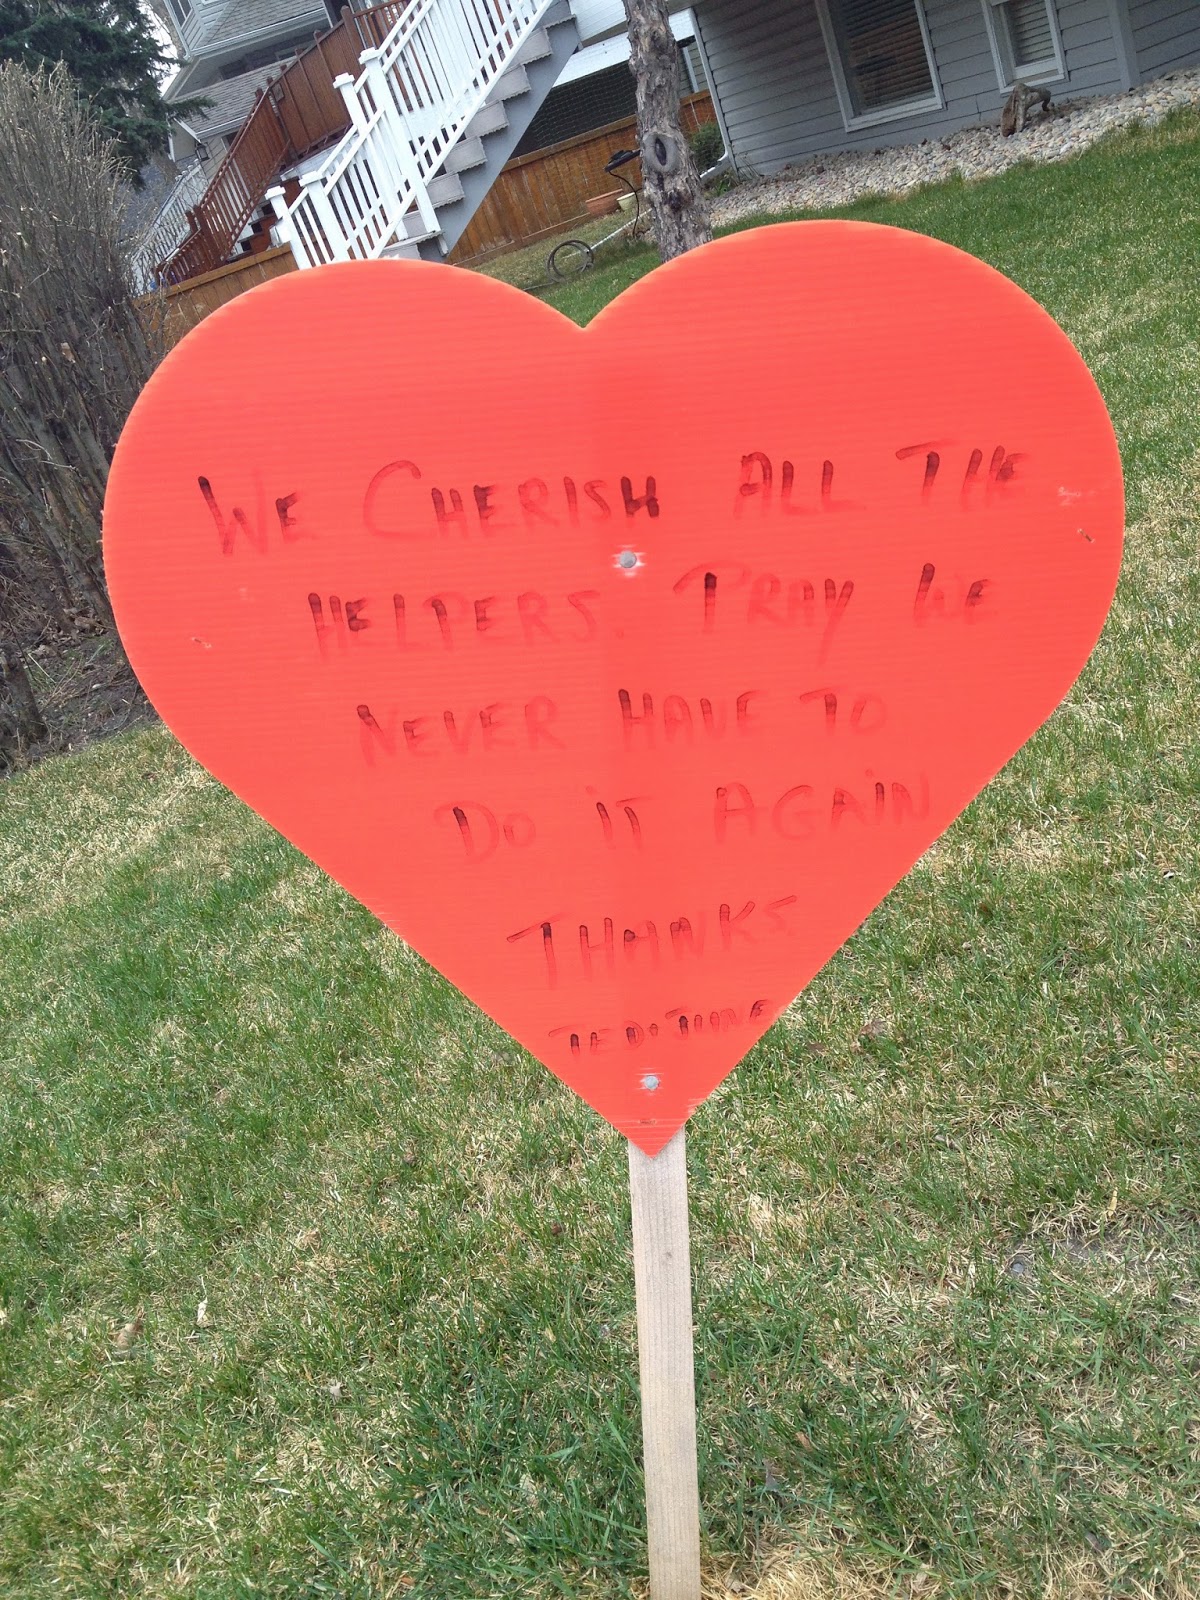 WE CHERISH ALL THE
HELPERS. PRAY WE
NEVER HAVE TO
DO IT AGAIN
THANKS
TED. JUNE